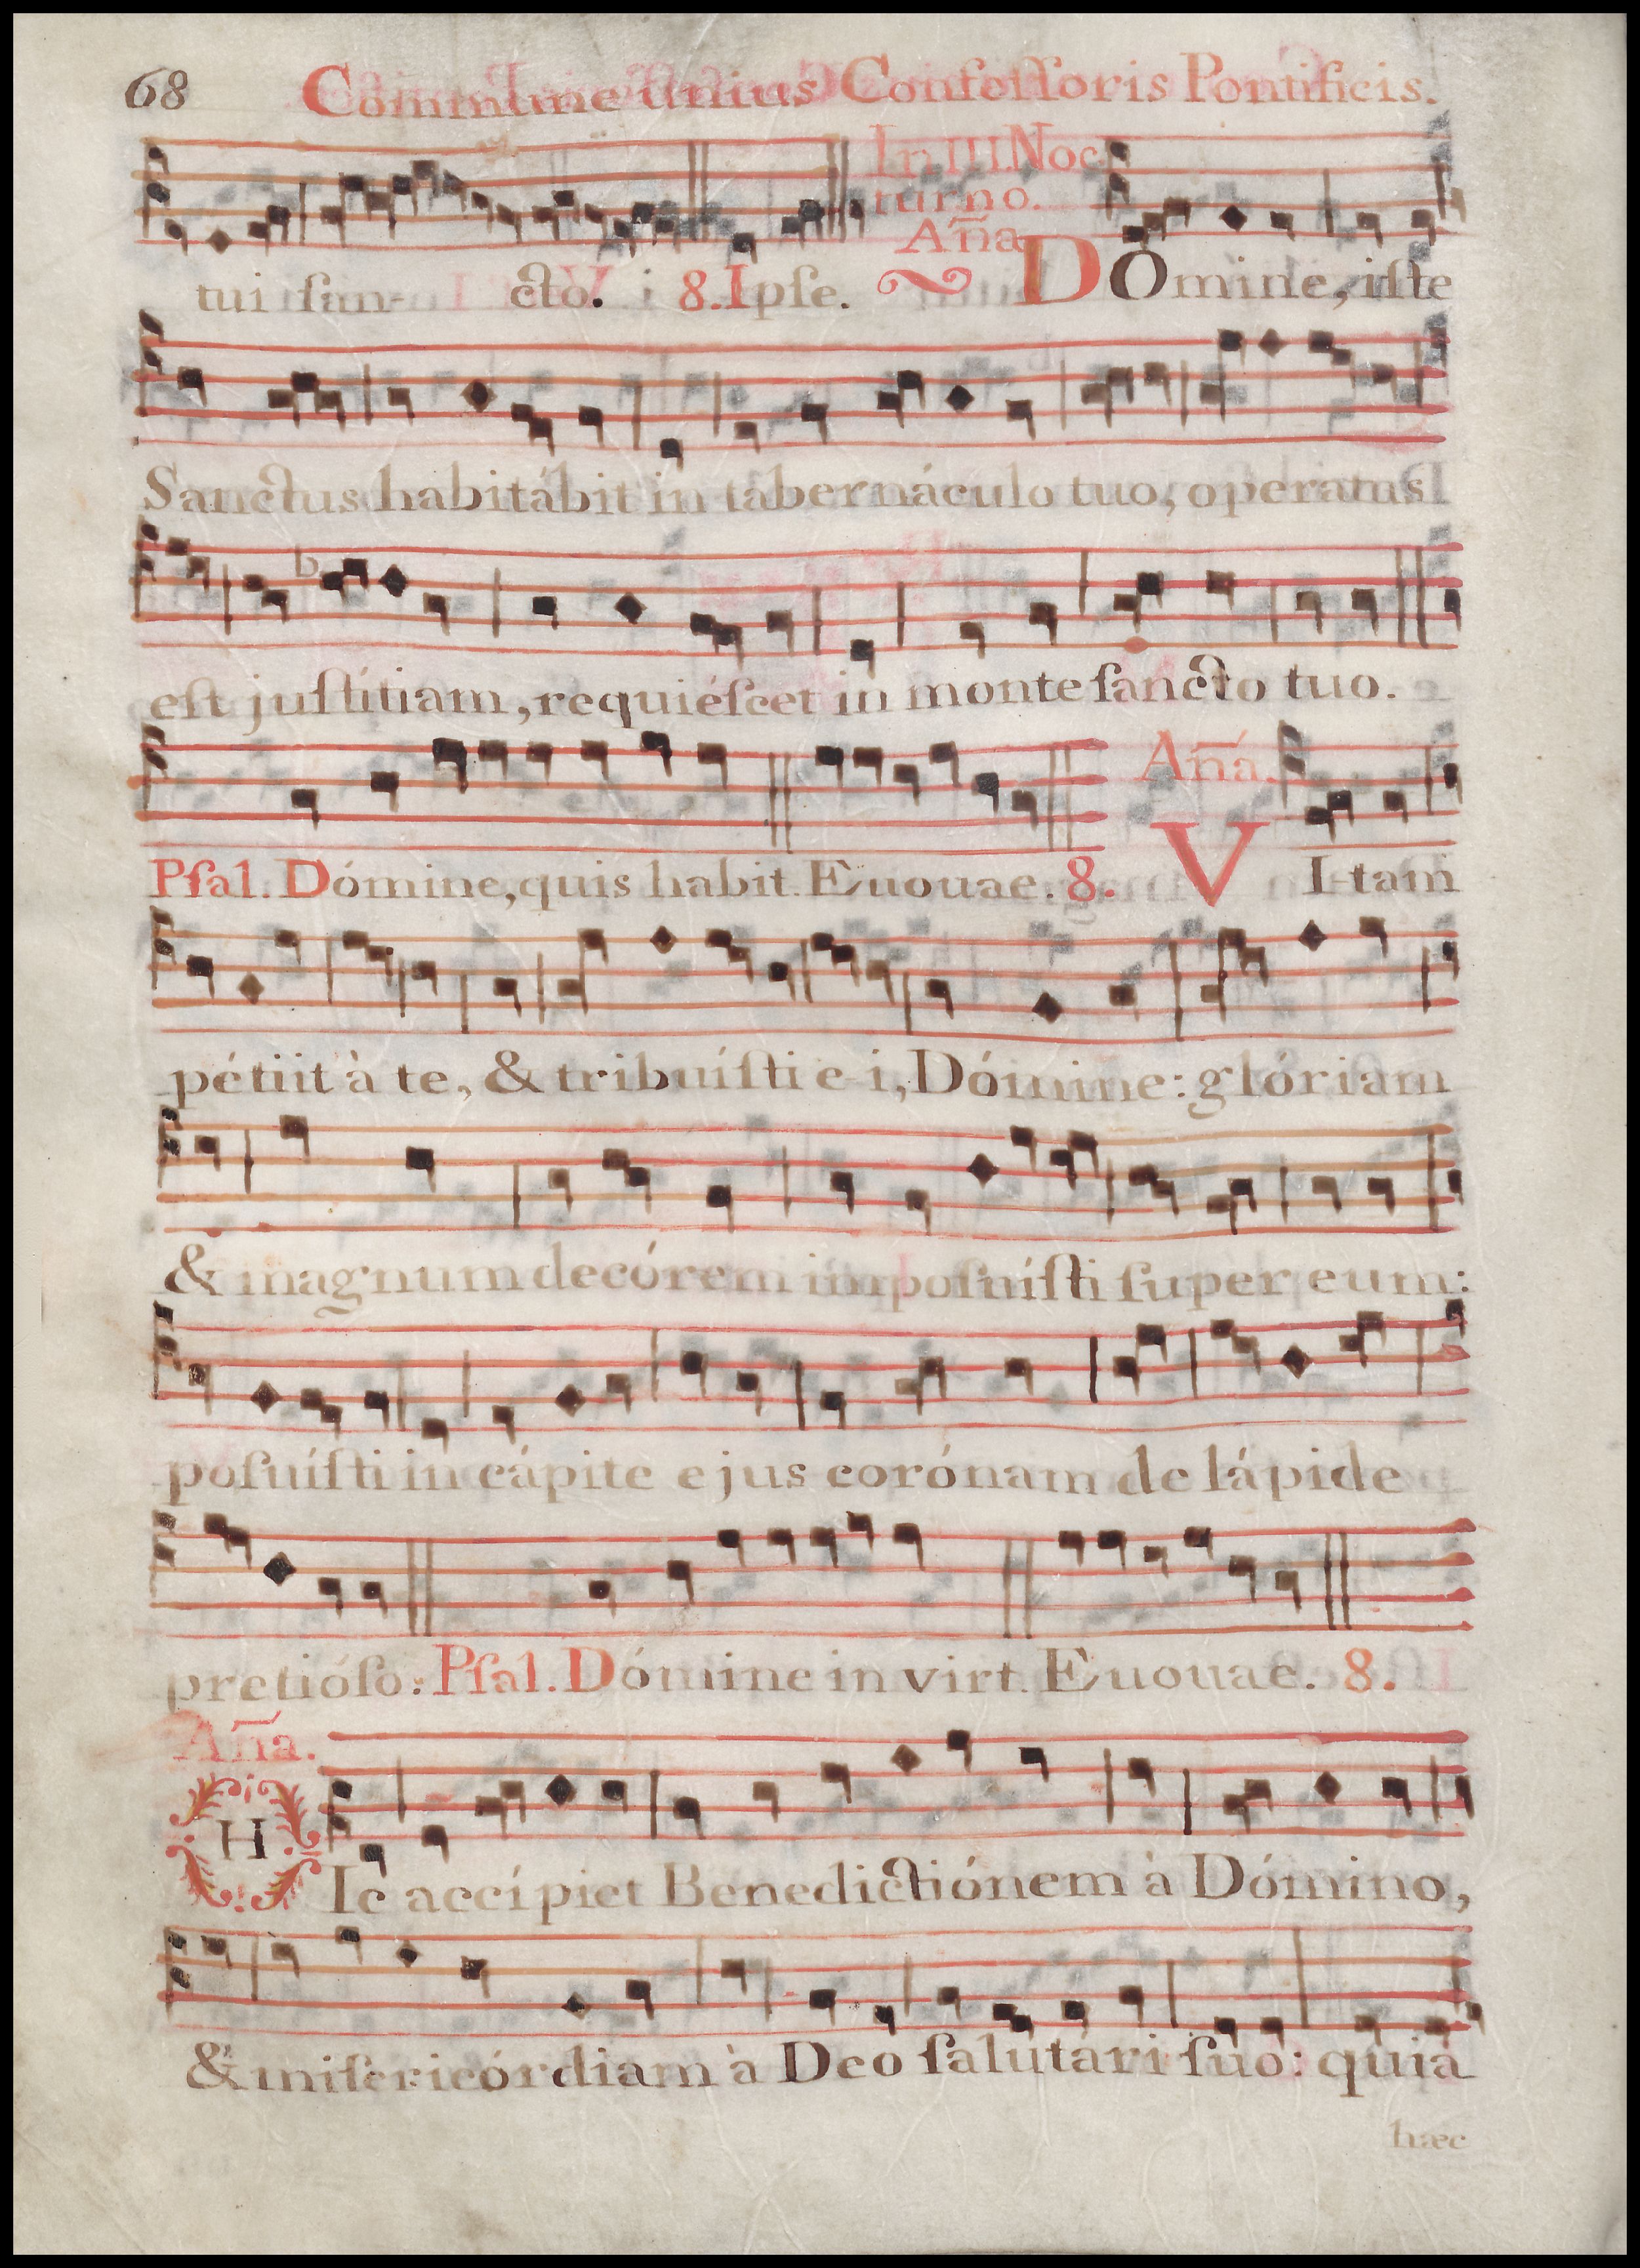 68 Commune unius Confeſſoris Pontificis.
In III. Noc
turno.
Aña
tui ſan- cto. 8. Ipſe. DOmine, iſte
Sanctus habitábit in tabernáculo tuo, operatus
eſt juſtítiam, requiéſcet in monte ſancto tuo.
Aña.
Pſal. Dómine, quis habit. Euouae. 8. VI-tam
pétiit à te, & tribuíſti e-i, Dómine: glóriam
& magnum decórem impoſuíſti ſuper eum:
poſuíſti in cápite ejus corónam de lápide
pretióſo: Pſal. Dómine in virt. Euouae. 8.
Aña.
HIc accípiet Benedictiónem à Dómino,
& miſericórdiam à Deo ſalutári ſuo: quia
hæc